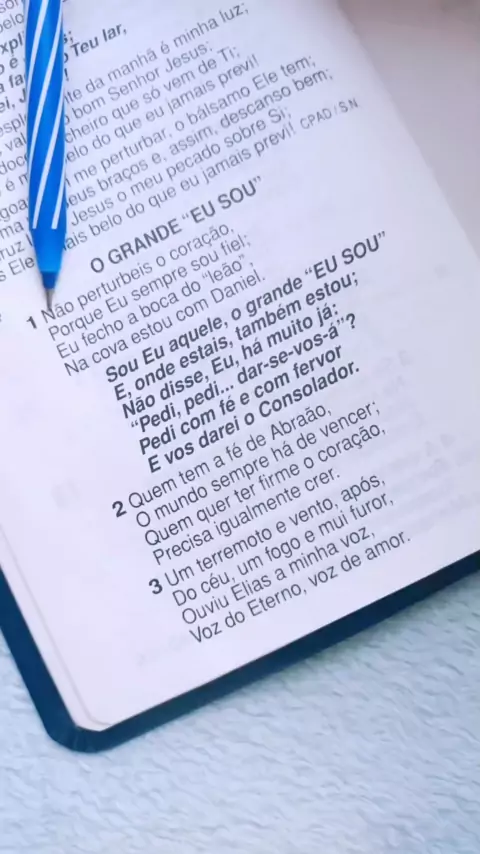 Teu lar,
te da manhã é minha luz;
bom Senhor Jesus:
cheiro que só vem de Ti;
belo do que eu jamais previ!
me perturbar, o bálsamo Ele tem;
eus braços e, assim, descanso bem;
Jesus o meu pecado sobre Si;
s Ele ais belo do que eu jamais previ! CPAD / S.N.
O GRANDE "EU SOU"
1 Não perturbeis o coração,
Porque Eu sempre sou fiel;
Eu fecho a boca do "leão";
Na cova estou com Daniel.
Sou Eu aquele, o grande "EU SOU"
E, onde estais, também estou;
Não disse, Eu, há muito já:
"Pedi, pedi... dar-se-vos-á"?
Pedi com fé e com fervor
E vos darei o Consolador.
2 Quem tem a fé de Abraão,
O mundo sempre há de vencer;
Quem quer ter firme o coração,
Precisa igualmente crer.
3 Um terremoto e vento, após,
Do céu, um fogo e mui furor,
Ouviu Elias a minha voz,
Voz do Eterno, voz de amor.